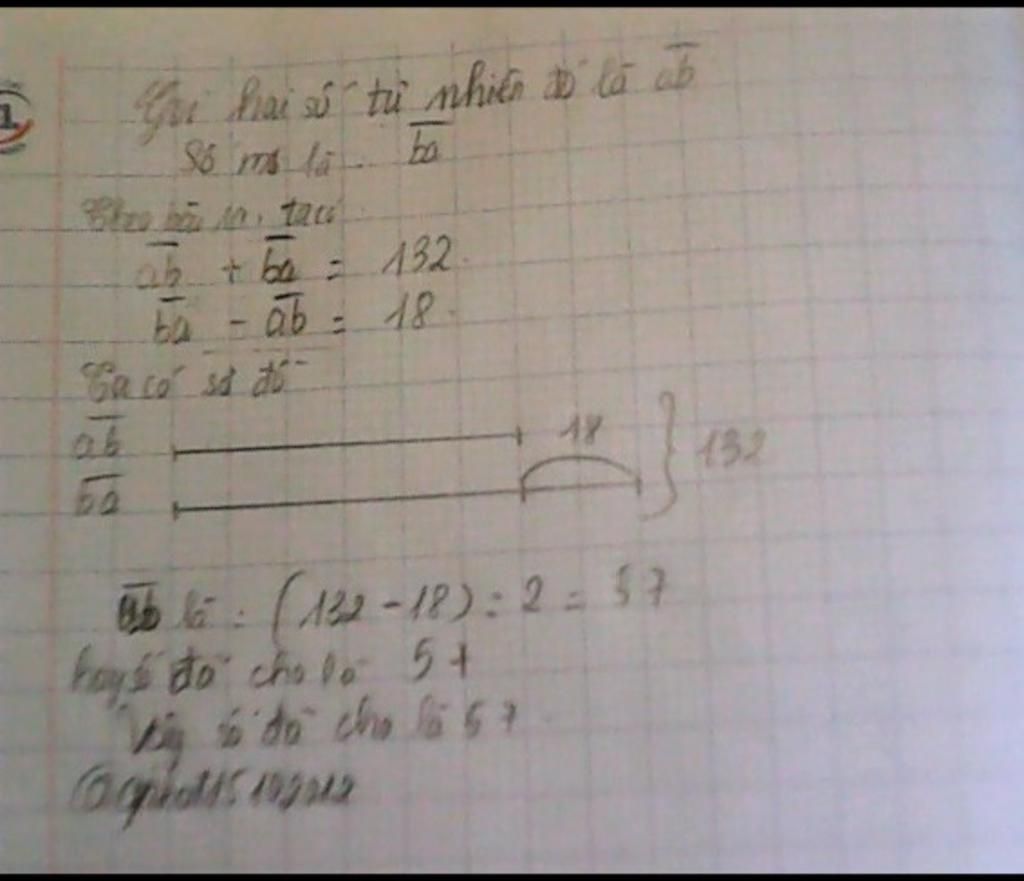 1
Gọi hai số tự nhiên đó là ab̅
Số ms là ba̅
ta có
ab̅ + ba̅ = 132
ba̅ - ab̅ = 18
Ta có sơ đồ
ab̅ 18
ba̅ 132
ab̅ là : (132 - 18) : 2 = 57
hay số đã cho là 57
Vậy số đã cho là 57